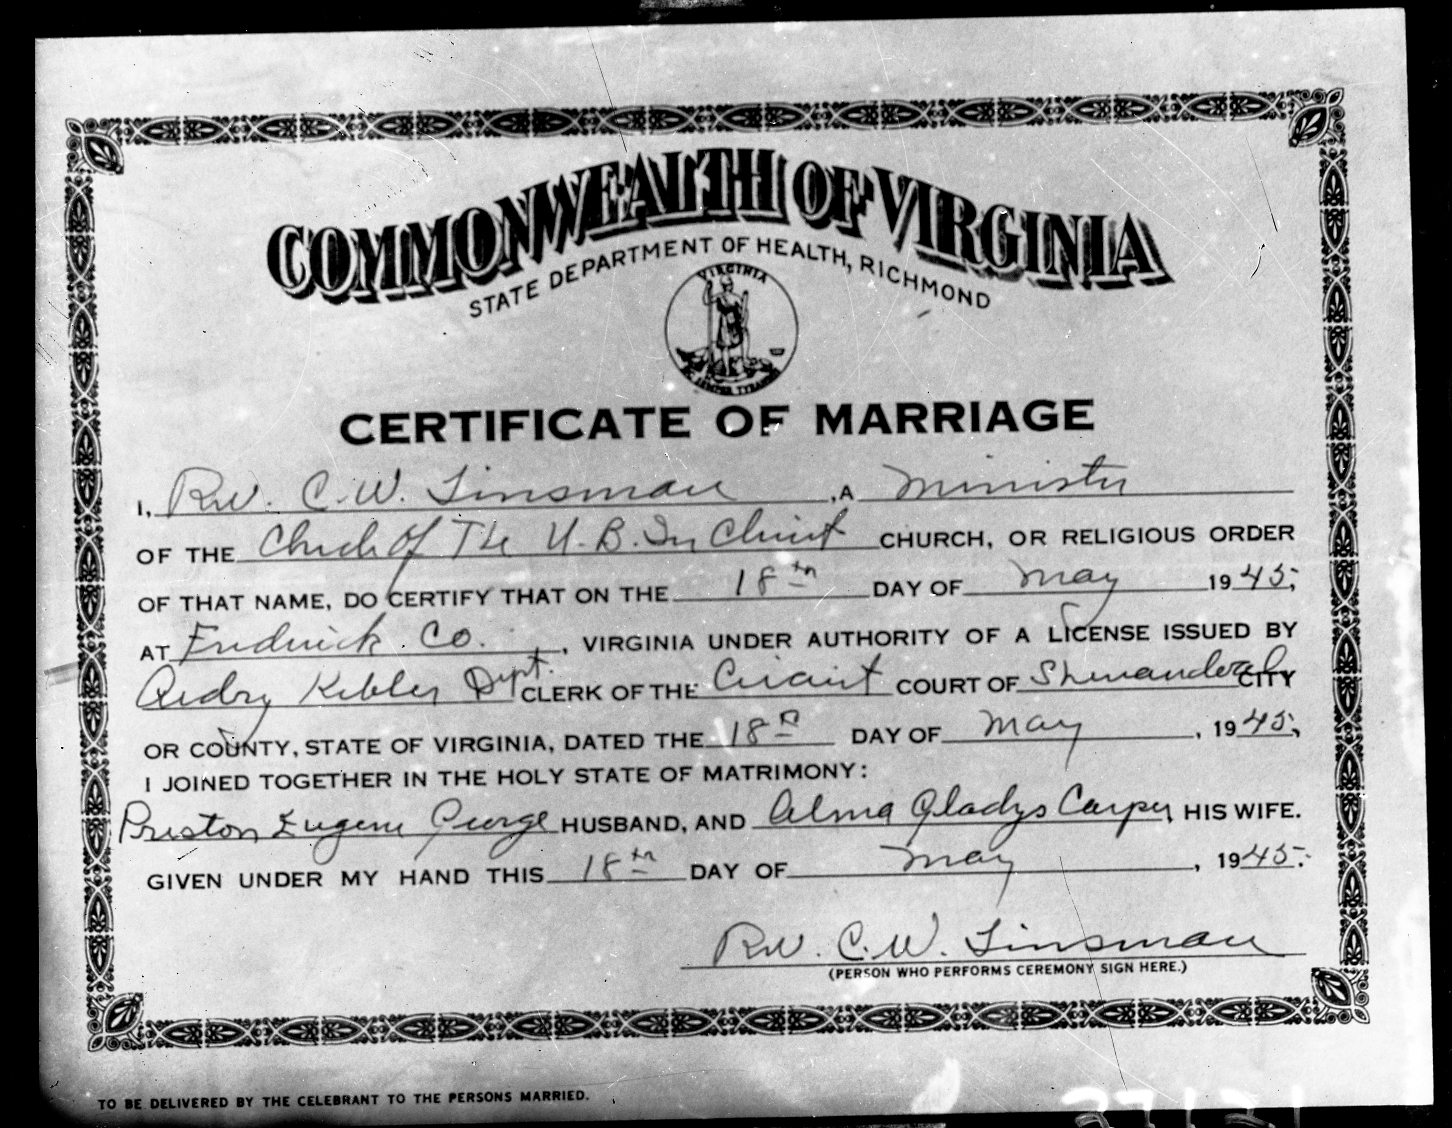 COMMONWEALTH OF VIRGINIA
STATE DEPARTMENT OF HEALTH, RICHMOND
VIRGINIA
CERTIFICATE OF MARRIAGE
I, Rev. C. W. Tinsman, A Minister
OF THE Church of The U. B. In Christ CHURCH, OR RELIGIOUS ORDER
OF THAT NAME, DO CERTIFY THAT ON THE 18th DAY OF May 1945,
AT Frederick Co., VIRGINIA UNDER AUTHORITY OF A LICENSE ISSUED BY
Audry Kibler Dept. CLERK OF THE Circuit COURT OF Shenandoah CITY
OR COUNTY, STATE OF VIRGINIA, DATED THE 18th DAY OF May, 1945,
I JOINED TOGETHER IN THE HOLY STATE OF MATRIMONY:
Preston Eugene George HUSBAND, AND Alma Gladys Carper, HIS WIFE.
GIVEN UNDER MY HAND THIS 18th DAY OF May, 1945.
Rev. C. W. Tinsman
(PERSON WHO PERFORMS CEREMONY SIGN HERE.)
TO BE DELIVERED BY THE CELEBRANT TO THE PERSONS MARRIED.